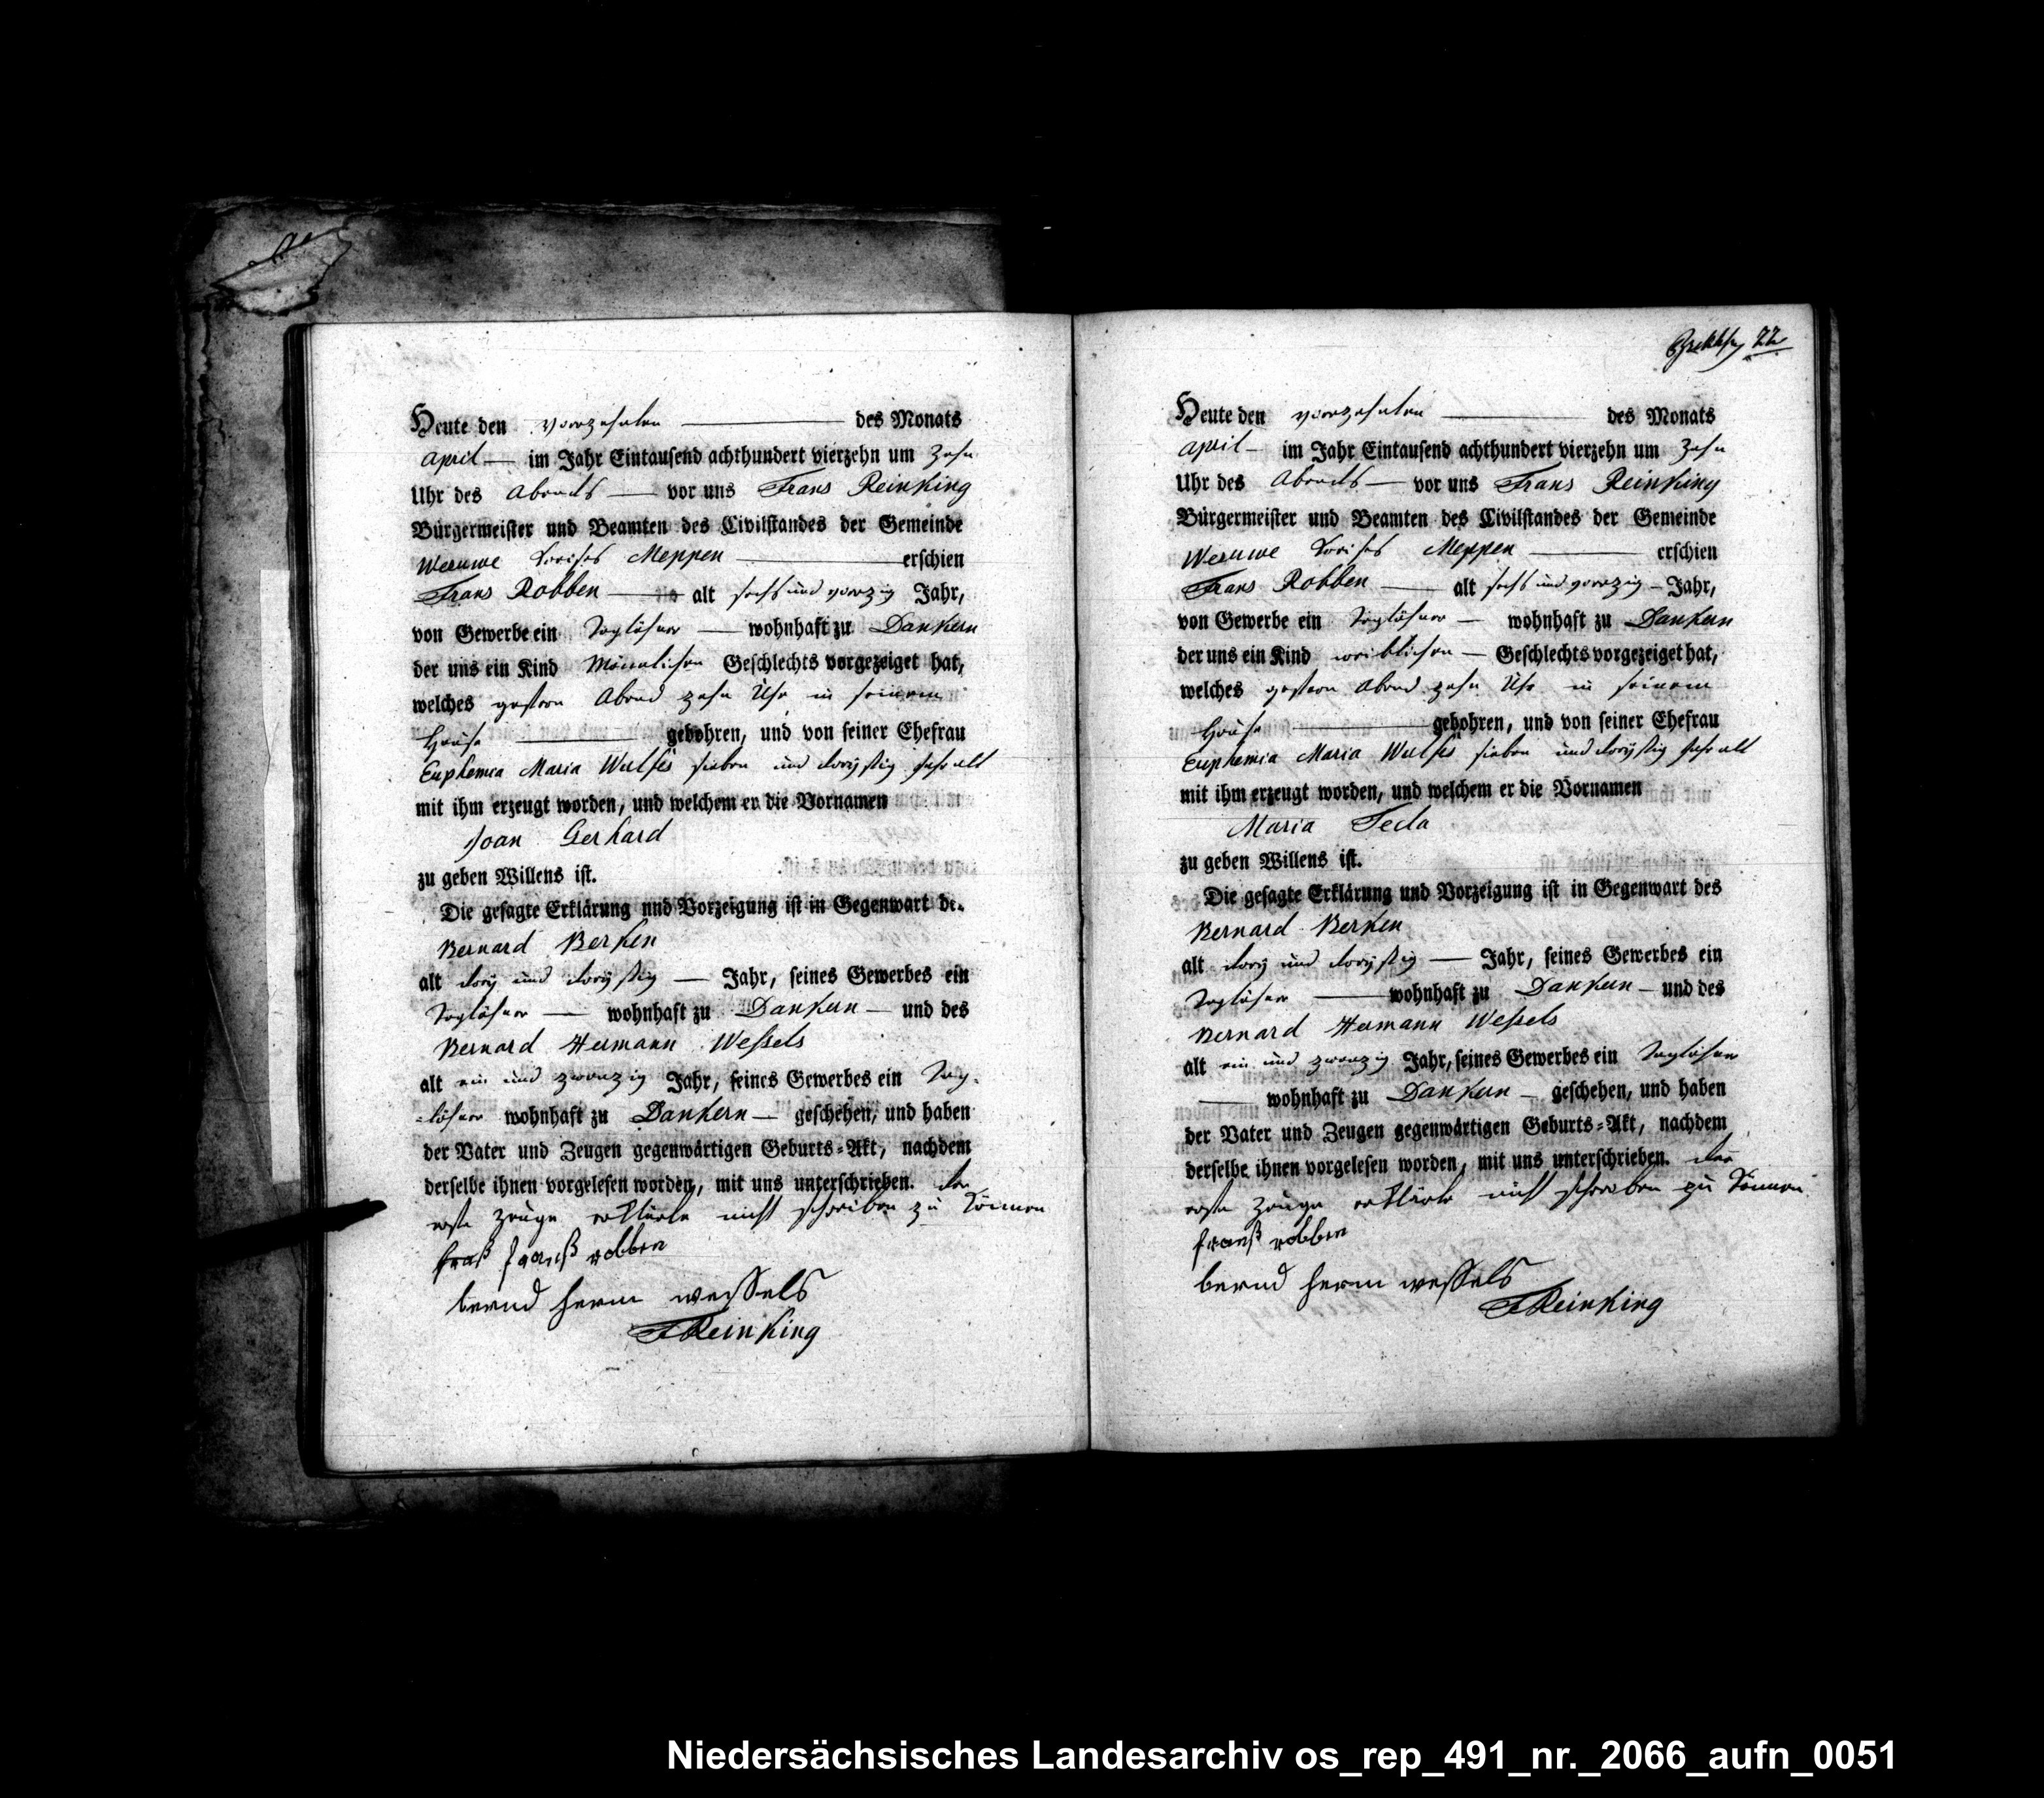 Heute den vierzehnten des Monats
April im Jahr Eintausend achthundert vierzehn um Zehn
Uhr des Abends vor uns Frans Reinking
Bürgermeister und Beamten des Civilstandes der Gemeinde
Wesuwe Meppen erschien
Frans Robben alt sechs und vierzig Jahr,
von Gewerbe ein Taglöhner wohnhaft zu Dankern
der uns ein Kind Mänlichen Geschlechts vorgezeiget hat,
welches gestern Abend zehn Uhr in seinem
Hause gebohren, und von seiner Ehefrau
Euphemia Maria Wulfes sieben und dreÿstig Jahr alt
mit ihm erzeugt worden, und welchem er die Vornamen
Joan Gerhard
zu geben Willens ist.
Die gesagte Erklärung und Vorzeigung ist in Gegenwart des
Bernard Berken
alt dreÿ und dreÿstig Jahr, seines Gewerbes ein
Taglöhner wohnhaft zu Dankern und des
Bernard Hermann Weßels
alt ein und zwanzig Jahr, seines Gewerbes ein Tag-
-löhner wohnhaft zu Dankern geschehen, und haben
der Vater und Zeugen gegenwärtigen Geburts-Akt, nachdem
derselbe ihnen vorgelesen worden, mit uns unterschrieben. der
erste Zeuge erklärte nicht schreiben zu können
franß robben
bernd herm wessels
FReinking
22
Heute den vierzehnten des Monats
April im Jahr Eintausend achthundert vierzehn um Zehn
Uhr des Abends vor uns Frans Reinking
Bürgermeister und Beamten des Civilstandes der Gemeinde
Wesuwe Meppen erschien
Frans Robben alt sechs und vierzig Jahr,
von Gewerbe ein Taglöhner wohnhaft zu Dankern
der uns ein Kind weiblichen Geschlechts vorgezeiget hat,
welches gestern Abend zehn Uhr in seinem
Hause gebohren, und von seiner Ehefrau
Euphemia Maria Wulfes sieben und dreÿstig Jahr alt
mit ihm erzeugt worden, und welchem er die Vornamen
Maria Tecla
zu geben Willens ist.
Die gesagte Erklärung und Vorzeigung ist in Gegenwart des
Bernard Berken
alt dreÿ und dreÿstig Jahr, seines Gewerbes ein
Taglöhner wohnhaft zu Dankern und des
Bernard Hermann Weßels
alt ein und zwanzig Jahr, seines Gewerbes ein Taglöhner
wohnhaft zu Dankern geschehen, und haben
der Vater und Zeugen gegenwärtigen Geburts-Akt, nachdem
derselbe ihnen vorgelesen worden, mit uns unterschrieben. der
erste Zeuge erklärte nicht schreiben zu können
franß robben
bernd herm wessels
FReinking
Niedersächsisches Landesarchiv os_rep_491_nr._2066_aufn_0051